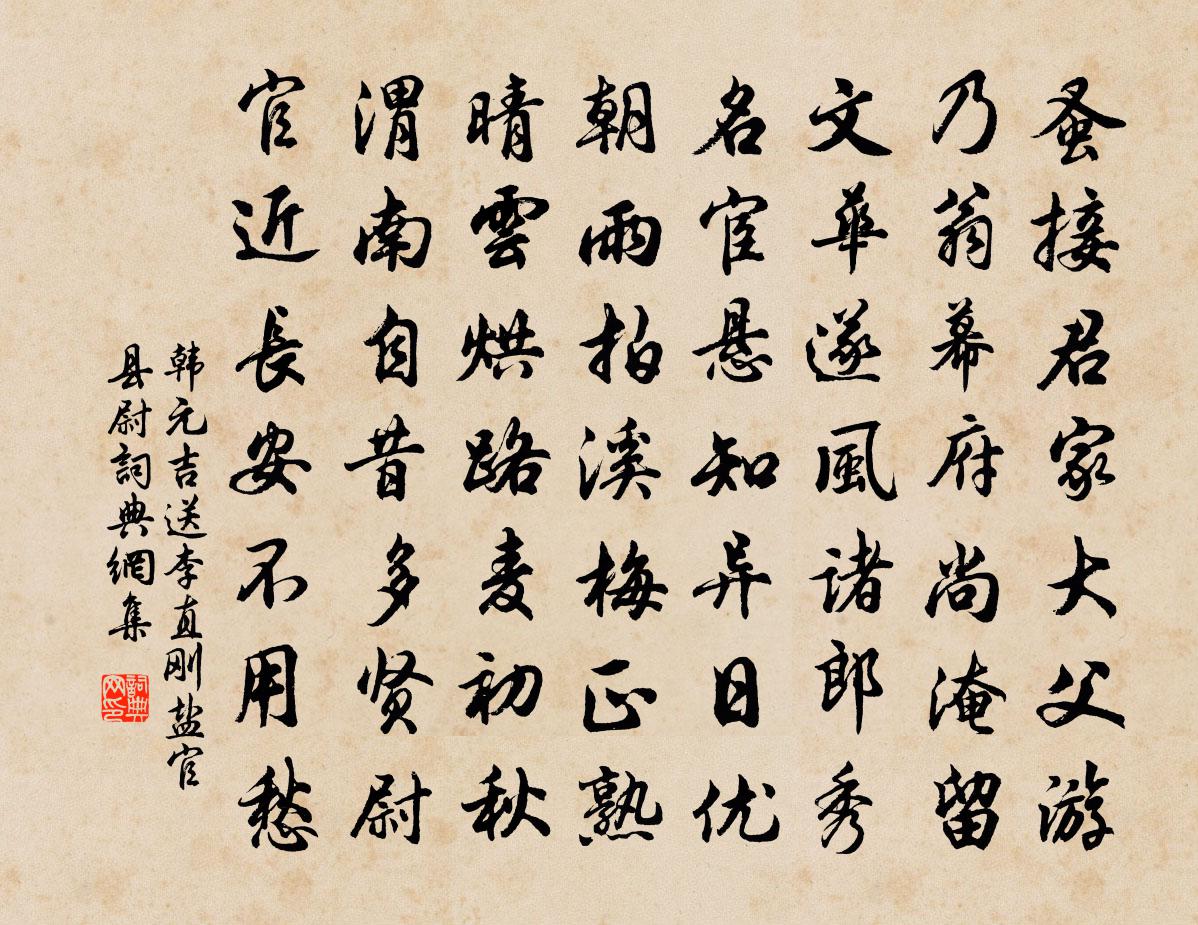 蚤接君家大父游
乃翁幕府尚淹留
文華遂風諸郎秀
名宦悬知异日优
朝雨拍溪梅正熟
晴雲烘路麦初秋
渭南自昔多贤尉
官近長安不用愁
韩元吉送李直刚盐官
县尉詞典網集
詞典网印